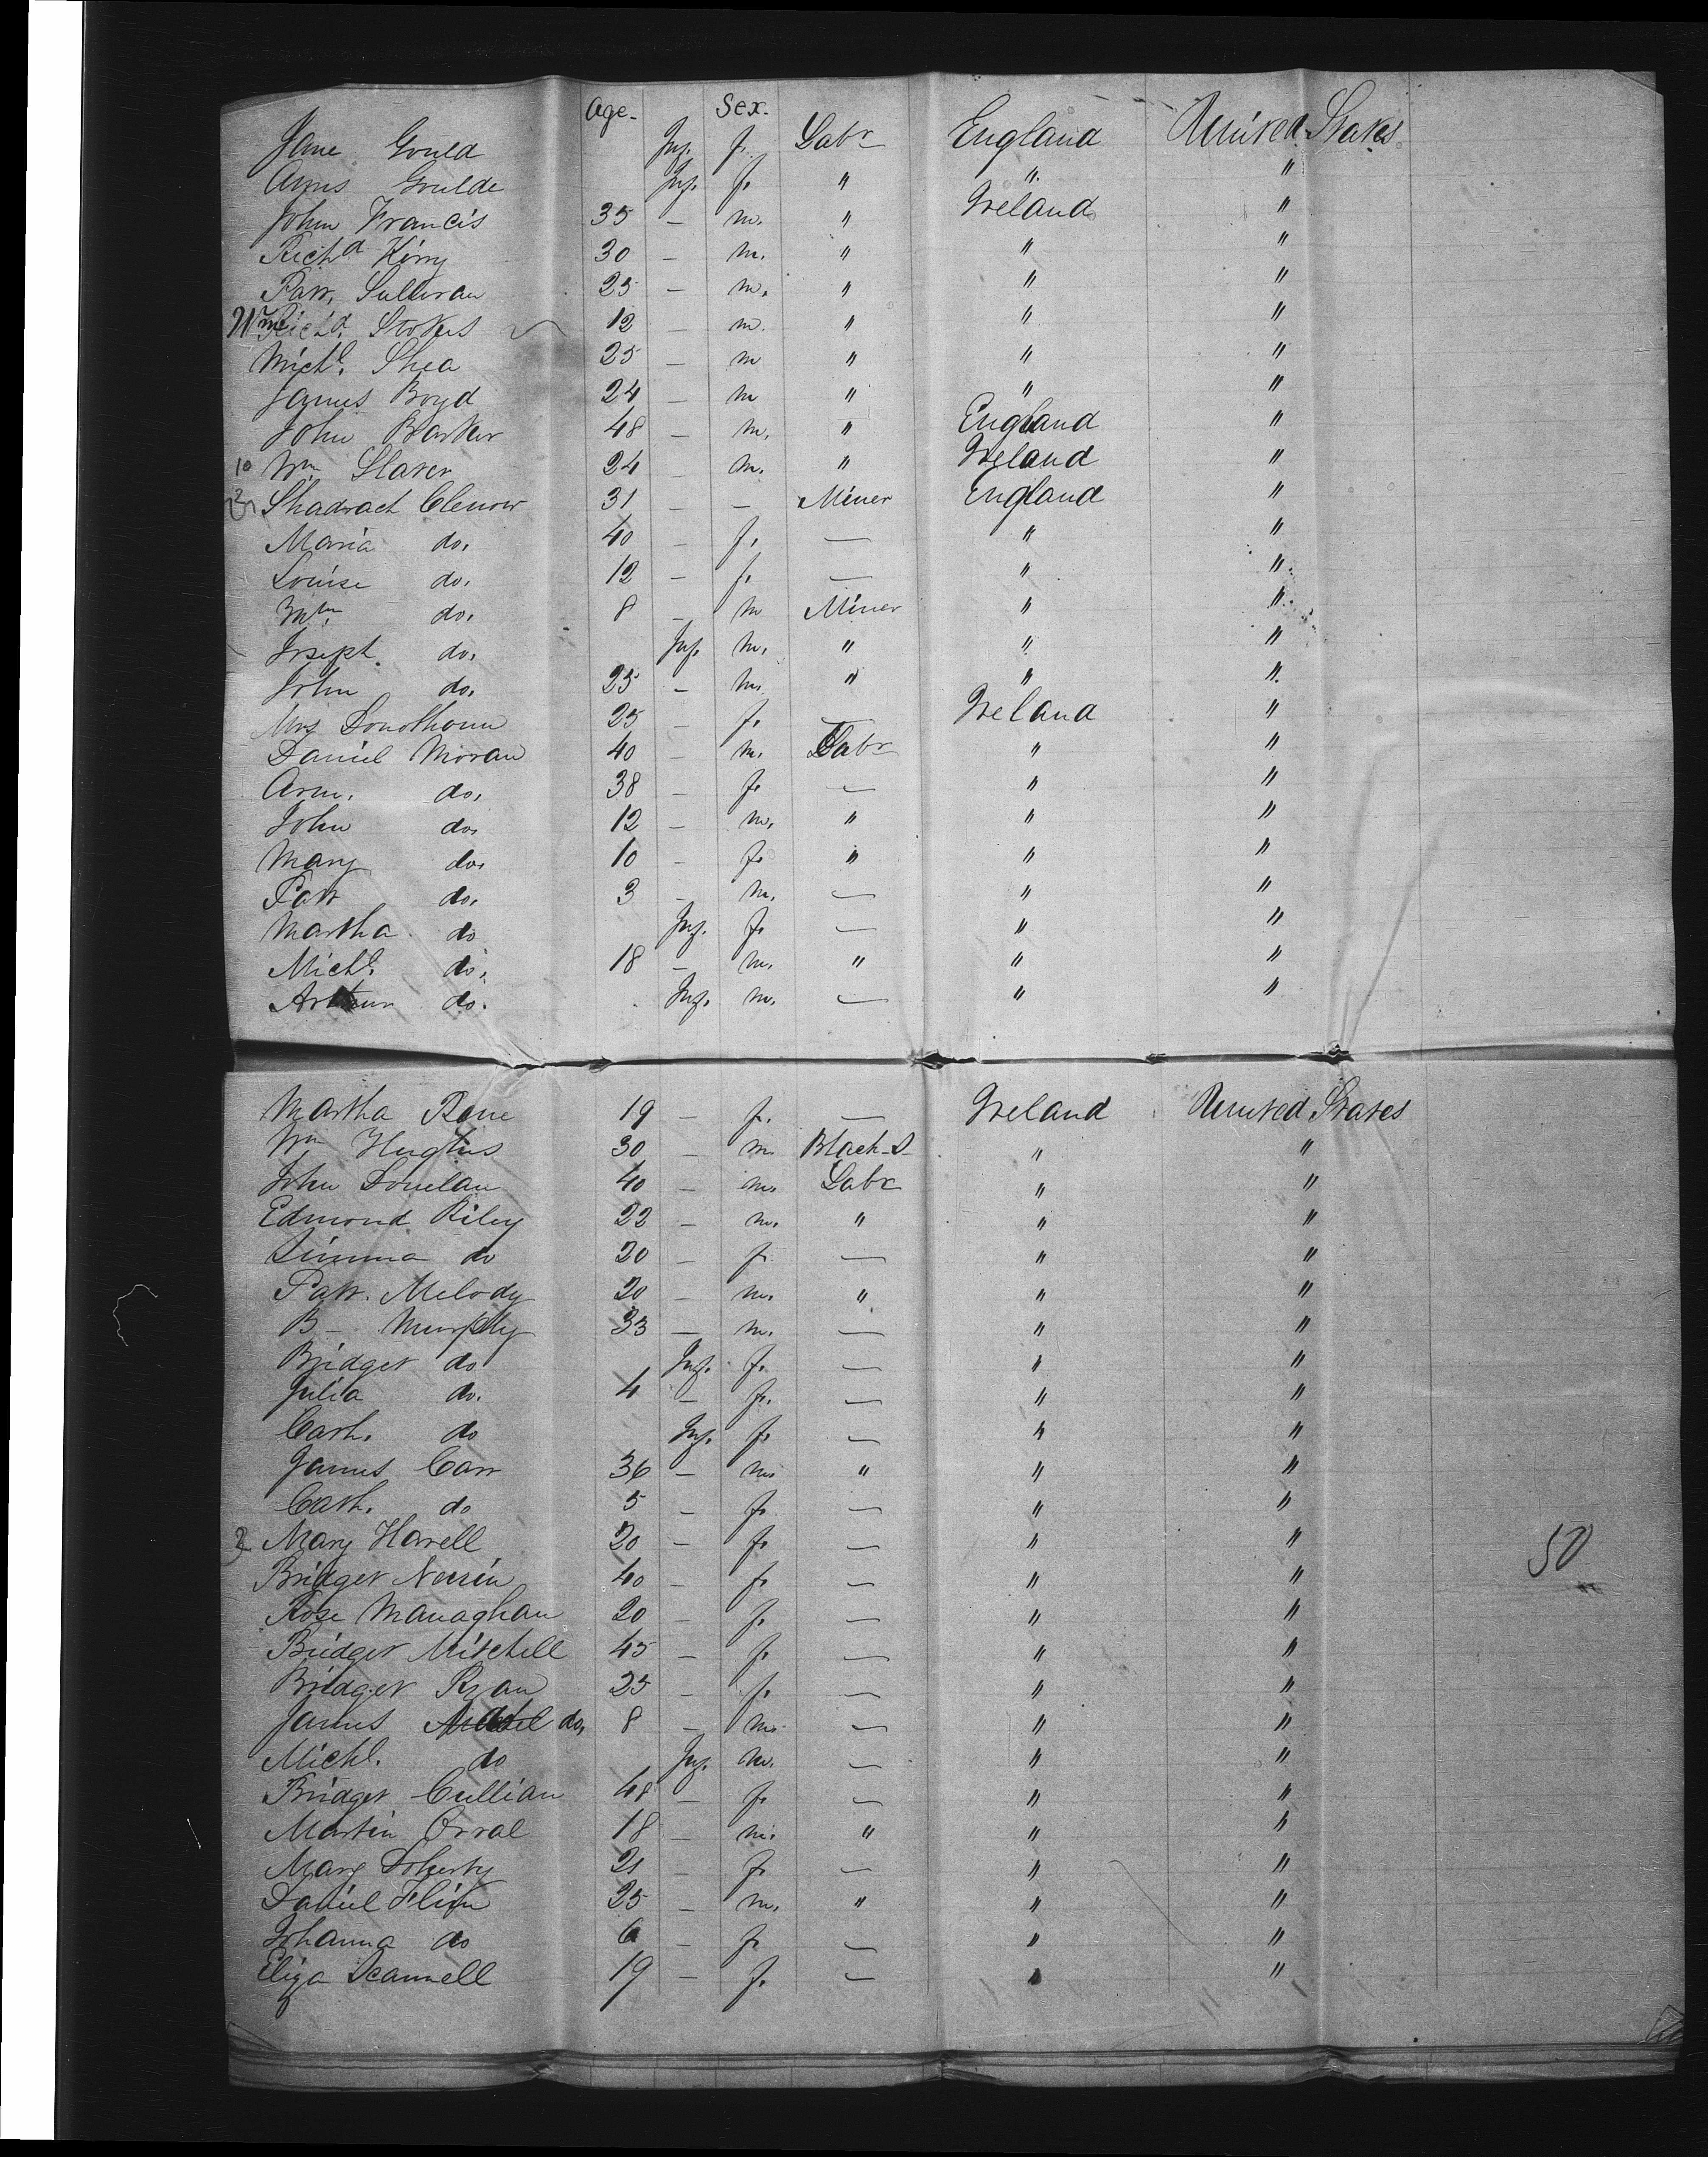 Age. Sex.
Jane Gould Inf. f. Labr England United States
Inf. f. " " "
John Francis 35 — m. " Ireland "
Richd King 30 — m. " " "
Patk. Sullivan 25 — m. " " "
Richd. Stokes 12 — m. " " "
Michl. Shea 25 — m " " "
James Boyd 24 — m " " "
John Barker 48 — m. " England "
10 Wm Slater 24 m. " Ireland "
Shadrach Clemow 31 — — Miner England "
Maria do. 40 — f. — " "
Louise do. 12 — f. — " "
Wm. do. 8 — m Miner " "
Joseph. do. Inf. m. " " "
John do. 25 — m. " " "
Mrs 25 — f. — Ireland "
Daniel Moran 40 — m. Labr " "
Ann. do. 38 — f. — " "
John do. 12 — m. " " "
Mary do. 10 — f. " " "
Patk do. 3 — m. — " "
Martha do Inf. f. — " "
Michl. do. 18 — m. " " "
Arthur do. Inf. m. — " "
Martha 19 — f. — Ireland United States
Wm Hughes 30 — m. Black-S " "
John Donelan 40 — m. Labr " "
Edmond Riley 22 — m. " " "
do 20 — f. — " "
Patk. Melody 20 — m. " " "
B— Murphy 33 — m. — " "
Bridget do Inf. f. — " "
Julia do. 4 — f. — " "
Cath. do Inf. f. — " "
James Carr 36 — m. " " "
Cath. do 5 — f. — " "
2 Mary Harell 20 — f. — " " 50
Bridget 40 — f. — " "
Rose Managhan 20 — f. — " "
Bridget Mitchell 45 — f. — " "
Bridget Ryan 25 — f. — " "
James do. 8 — m. — " "
Michl. do Inf. m. — " "
Bridget Cullian 48 — f. — " "
Martin Orral 18 — m. " " "
Mary Doherty 21 — f. — " "
Daniel Flinn 25 — m. " " "
Johanna do 6 — f. — " "
Eliza Scannell 19 — f. — " "